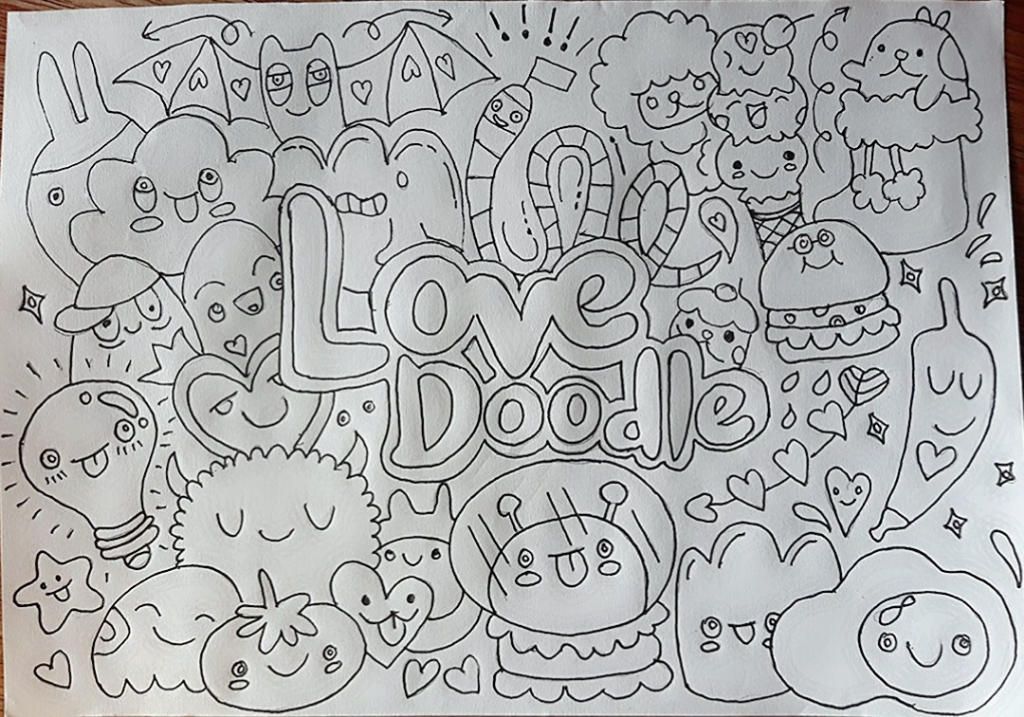 Love
Doodle